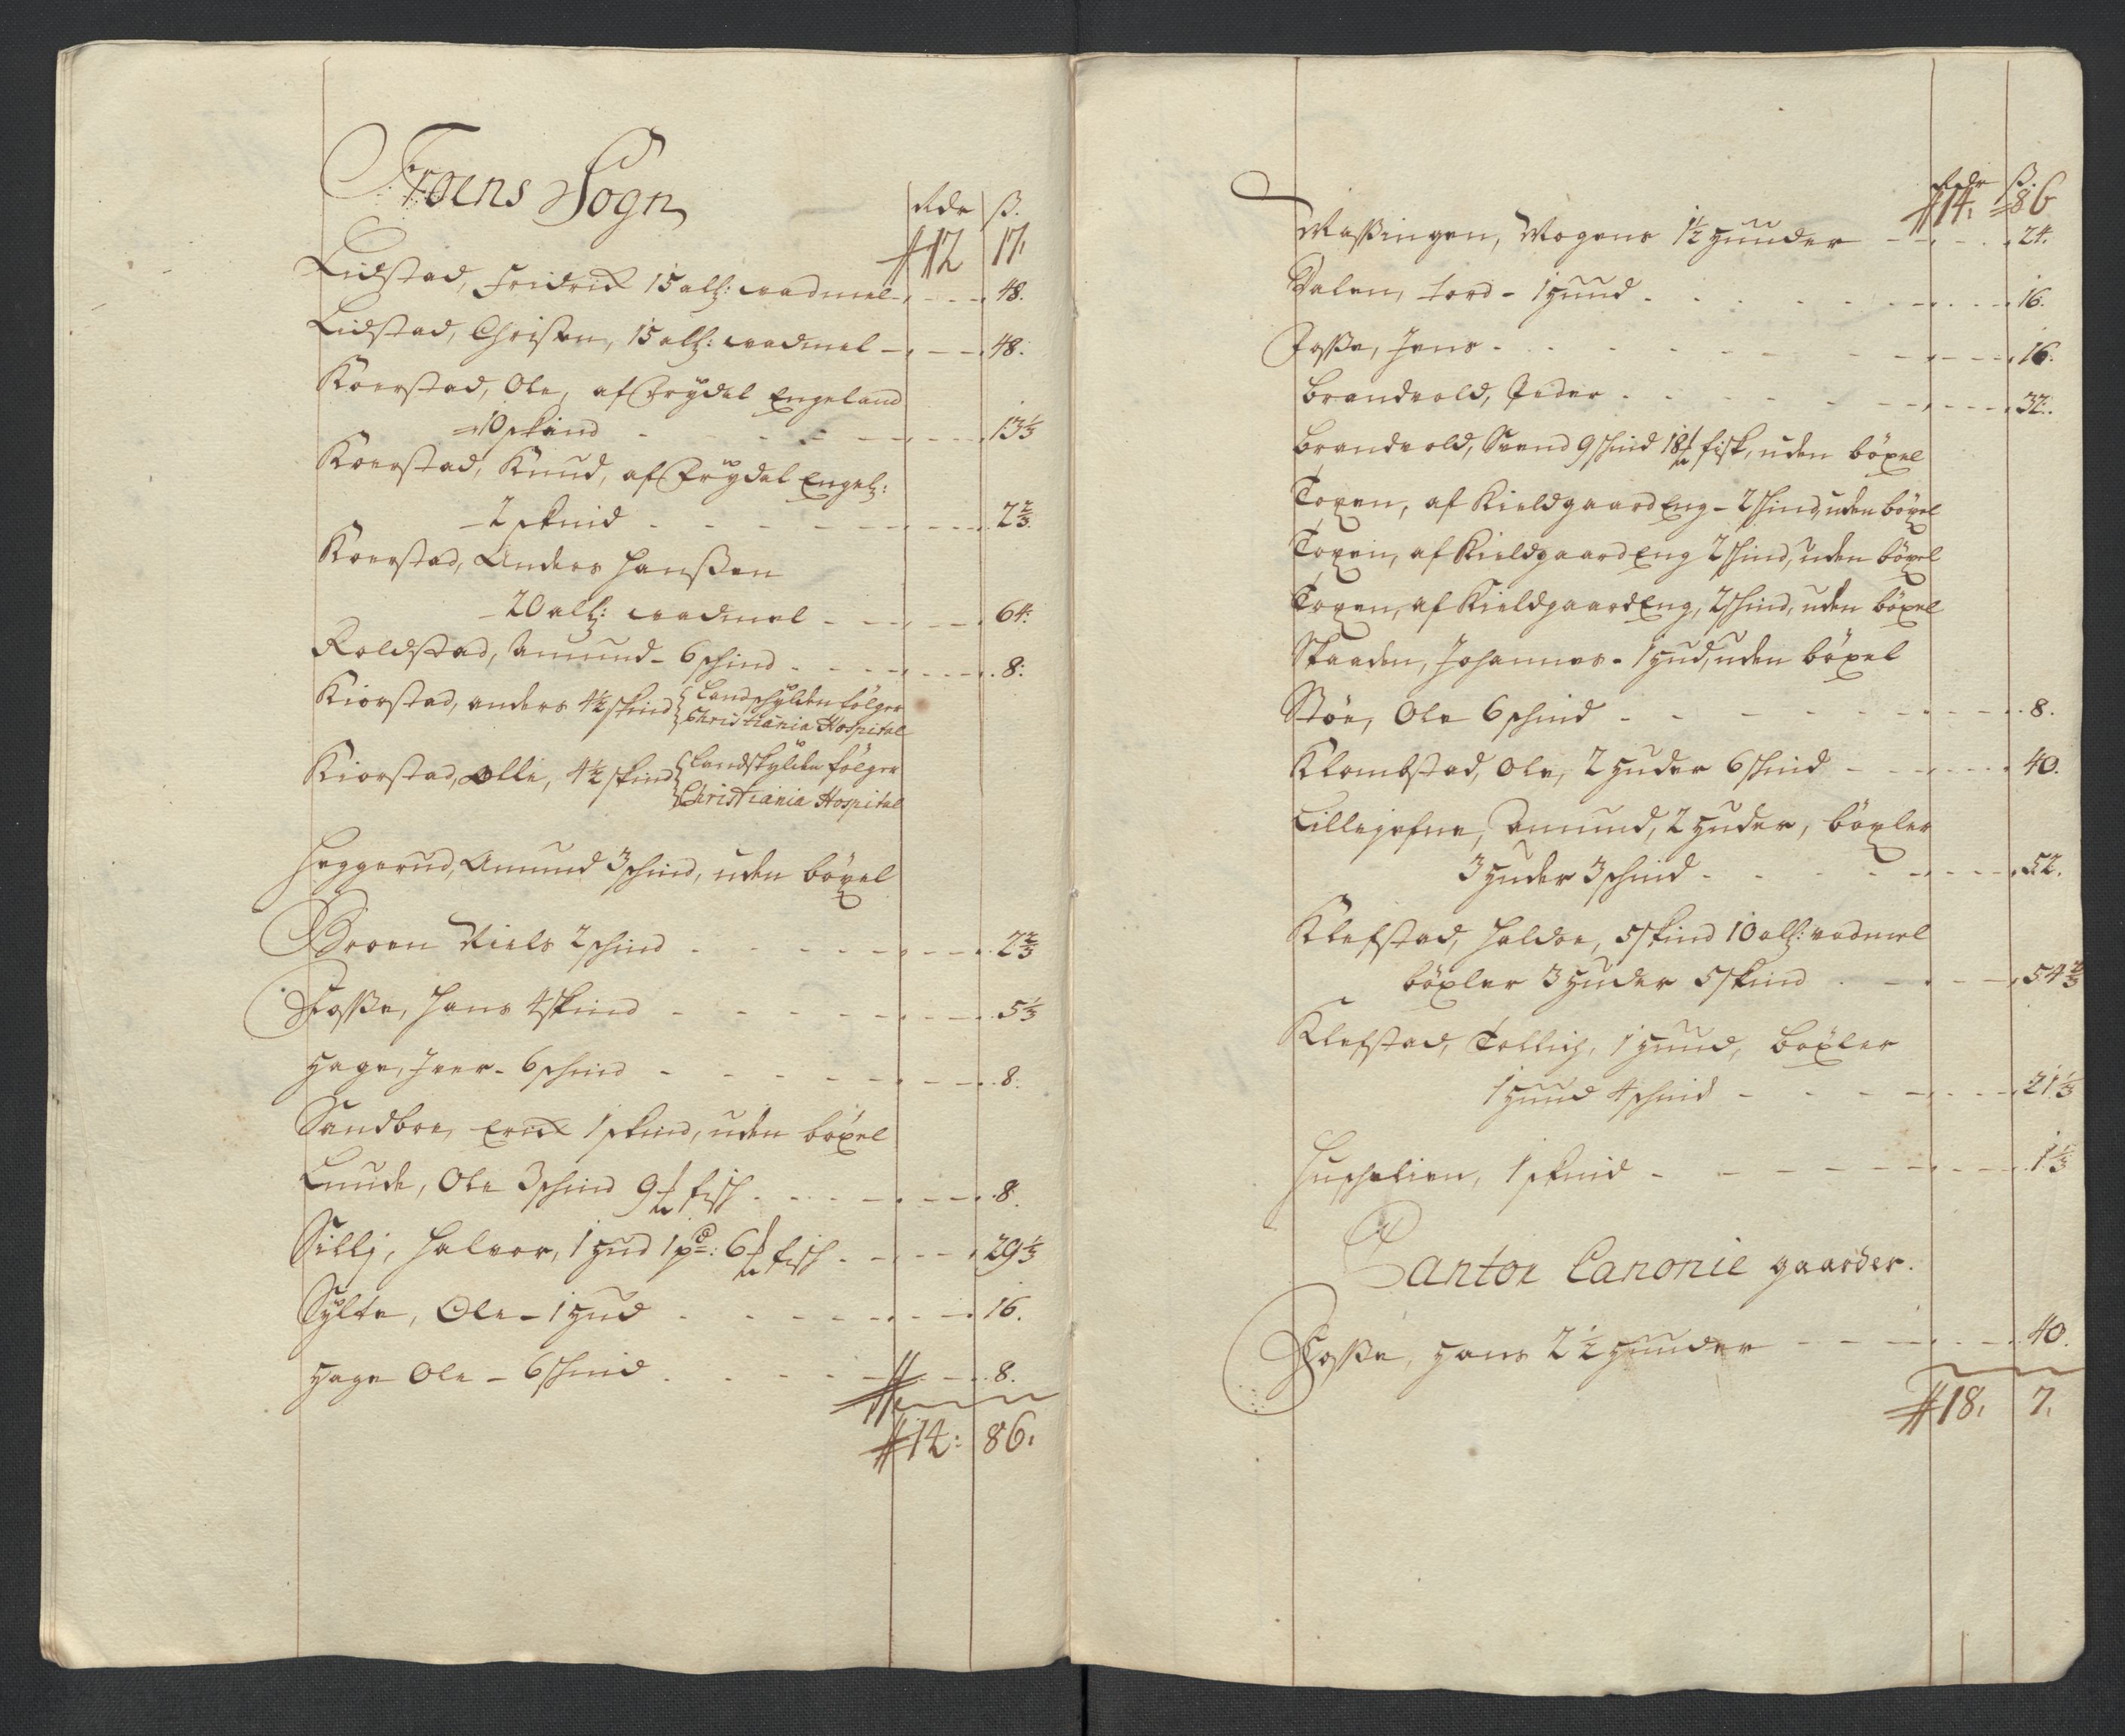 Froens Sogn
Rdr ß.
#12 17.
Lidstad, Fridrix 15 allz: wadmel 48.
Lidstad, Christen, 15 allz: wadmel 48.
Koerstad, Ole, af Frydal Engeland
10 skind 13 1/3
Koerstad, Knud, af Frydal Engel:
2 skind 2 2/3
Koerstad, Anders Hanßen
20 allz: wadmel 64.
Roldstad, Amund - 6 schind 8:
Kiorstad, anders 4 1/2 skind { Landschylden følger
Christiania Hospital
Kiorstad, Olle, 4 1/2 skind { Landskylden følger
Christiania Hospital
Heggerud, Amund 3 schind, uden böxel
Broen Niels 2 schind 2 2/3
Foße, Hans 4 skind 5 1/3
Hage, Iver - 6 schind 8.
Sandboe, Erix 1 skind, uden böxel
Lunde, Ole 3 schind 9 fisch 8.
Sillj, Halvor, 1 hud 1 pd: 6 fisch 29 1/3
Sylte, Ole - 1 hud 16.
Hage Ole - 6 schind 8.
#14: 86.
Rdr ß.
#14. 86
Maßingen, Mogens 1 1/2 huuder 24.
Dalen, Tord - 1 huud 16.
Foße, Jens 16.
Brandvold, Peder 32.
Brandvold, Svend 9 schind 18 fisk, uden böxel
Toxen, af Kieldgaard Eng - 2 schind, uden böxel
Toxen, af Kieldgaard Eng 2 schind, uden böxel
Toxen, af Kieldgaard Eng, 2 schind, uden böxel
Skaaden, Johannes - 1 hud, uden böxel
Stöe, Ole 6 schind 8.
Klombstad, Ole, 2 huder 6 schind 40.
Lillejefne, Amund, 2 huder, böxler
3 huder 3 schind 52.
Klefstad, Haldor, 5 skind 10 allz: wadmel
böxler 3 huder 5 skind 54 2/3
Klefstad, 1 huud, Böxler
1 huud 4 schind 21 1/3
1 skind 1 1/3
Cantor Canonie gaarder.
Foße, Hans 2 1/2 huuder 40.
#18. 7.